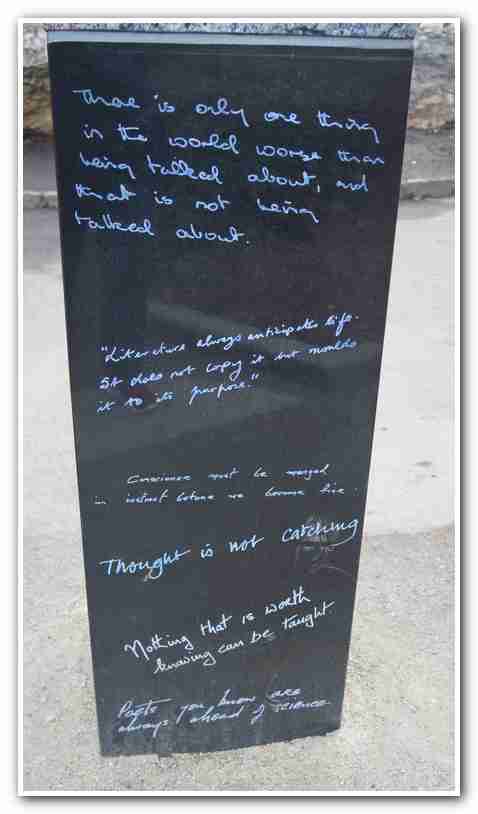 There is only one thing
in the world worse than
being talked about, and
that is not being
talked about.
"Literature always anticipates life.
It does not copy it but moulds
it to its purpose."
Conscience must be merged
in instinct before we become fine.
Thought is not catching
Nothing that is worth
knowing can be taught.
Poets you know are
always ahead of science